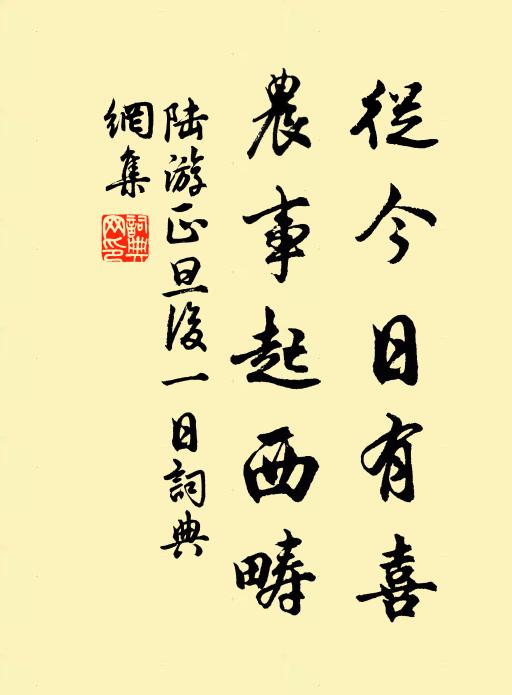 從今日有喜
農事起西疇
陆游正旦後一日詞典
網集
詞典網印